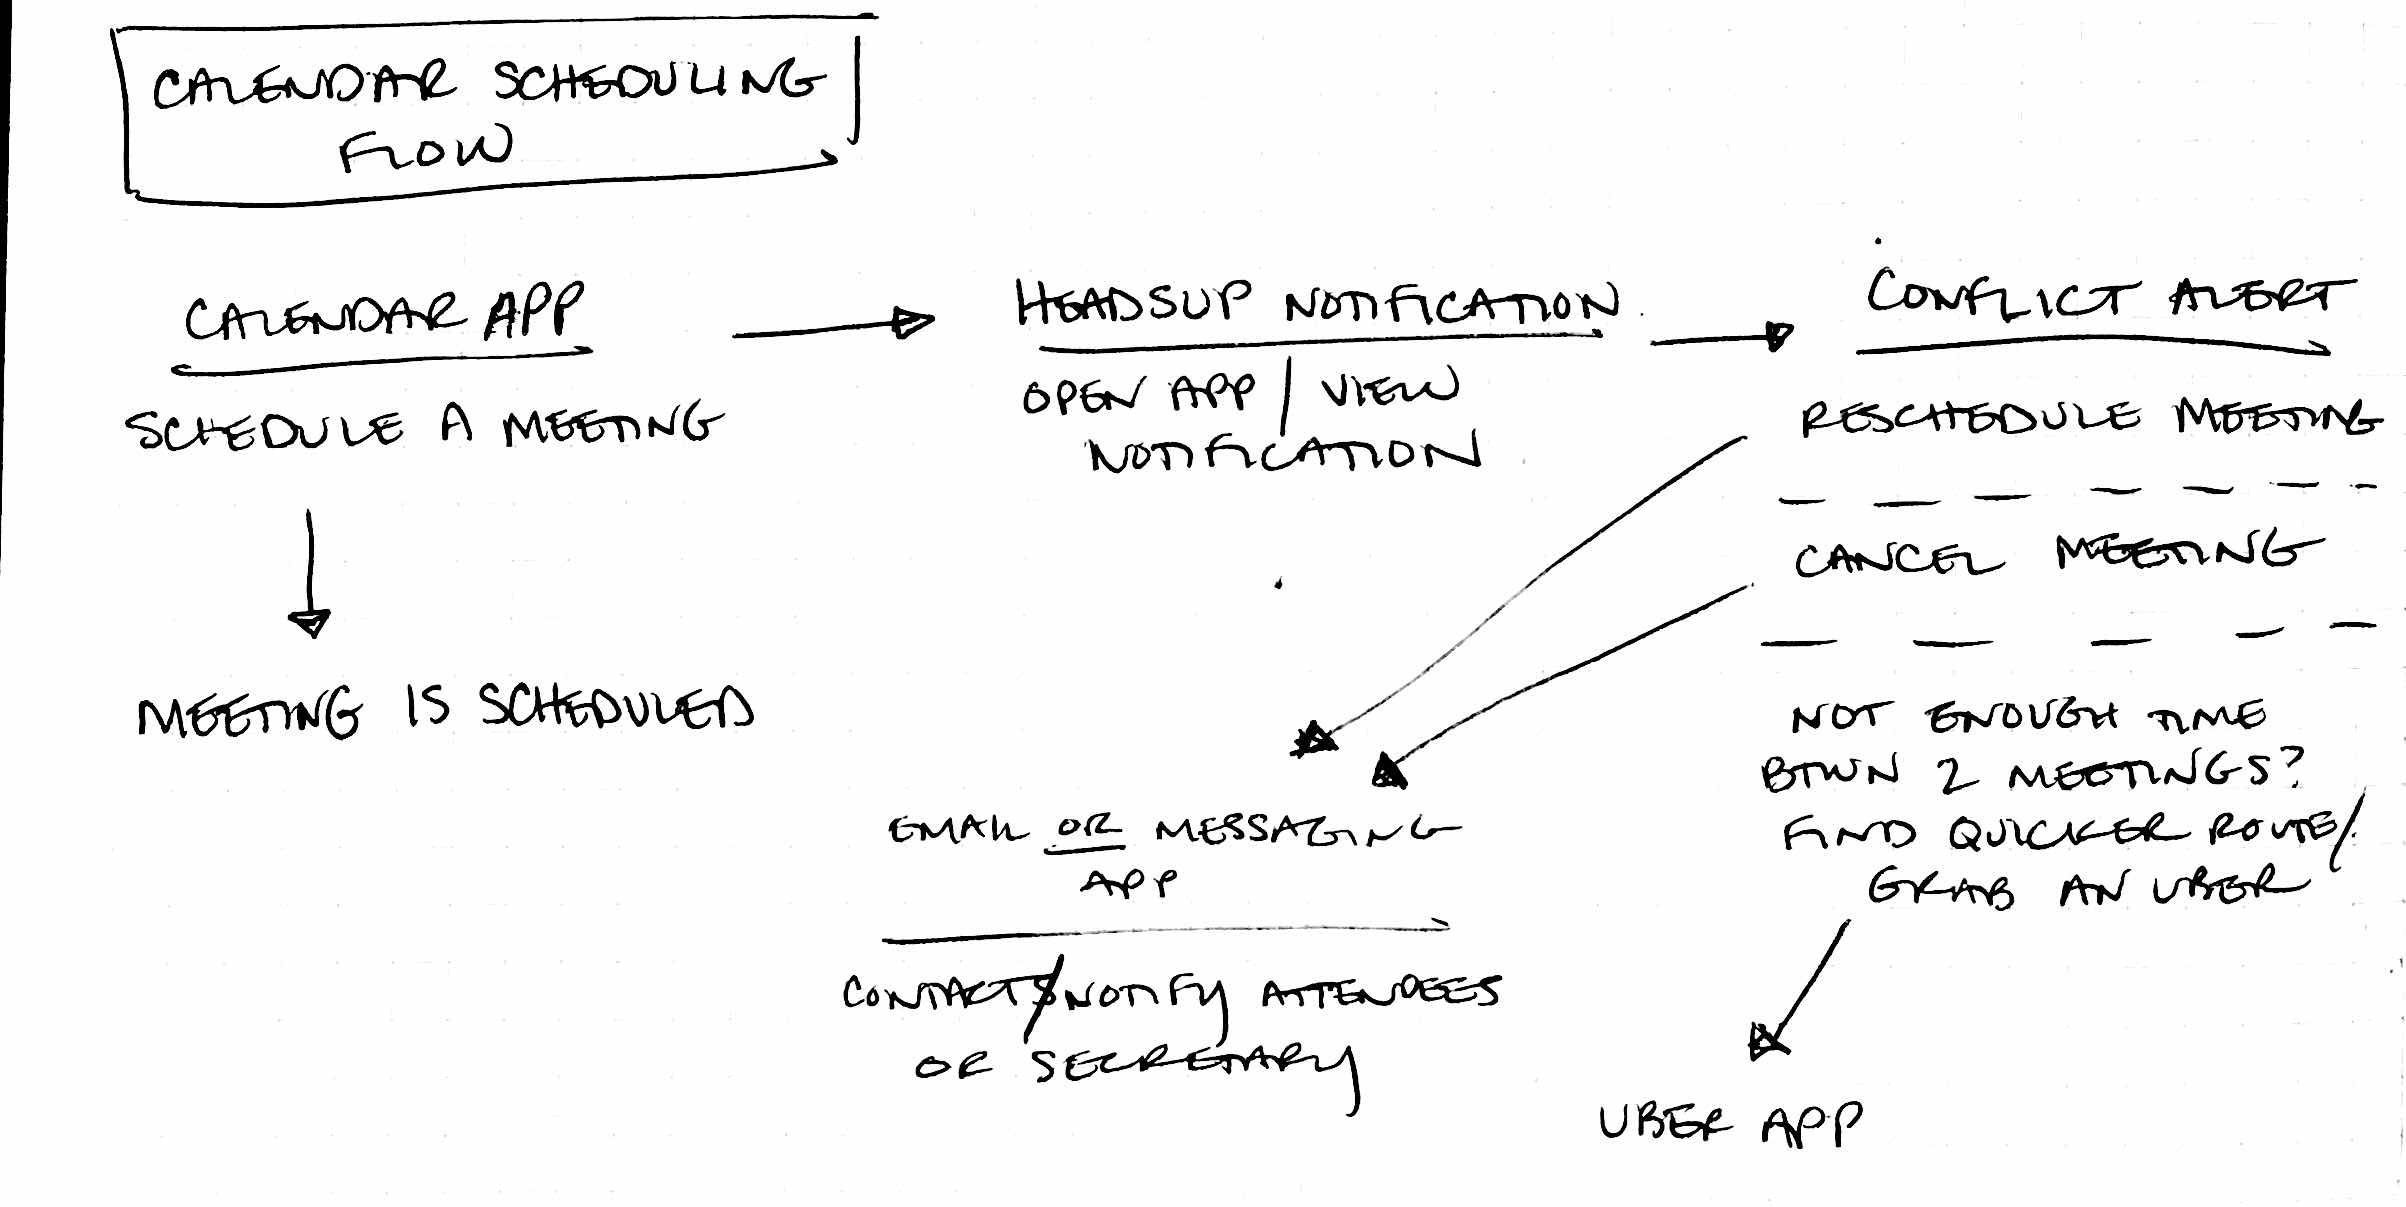 CALENDAR SCHEDULING
FLOW
CALENDAR APP
SCHEDULE A MEETING
MEETING IS SCHEDULED
HEADSUP NOTIFICATION
OPEN APP / VIEW
NOTIFICATION
CONFLICT ALERT
RESCHEDULE MEETING
CANCEL MEETING
NOT ENOUGH TIME
BTWN 2 MEETINGS?
FIND QUICKER ROUTE/
GRAB AN UBER
EMAIL OR MESSAGING
APP
CONTACT/NOTIFY ATTENDEES
OR SECRETARY
UBER APP